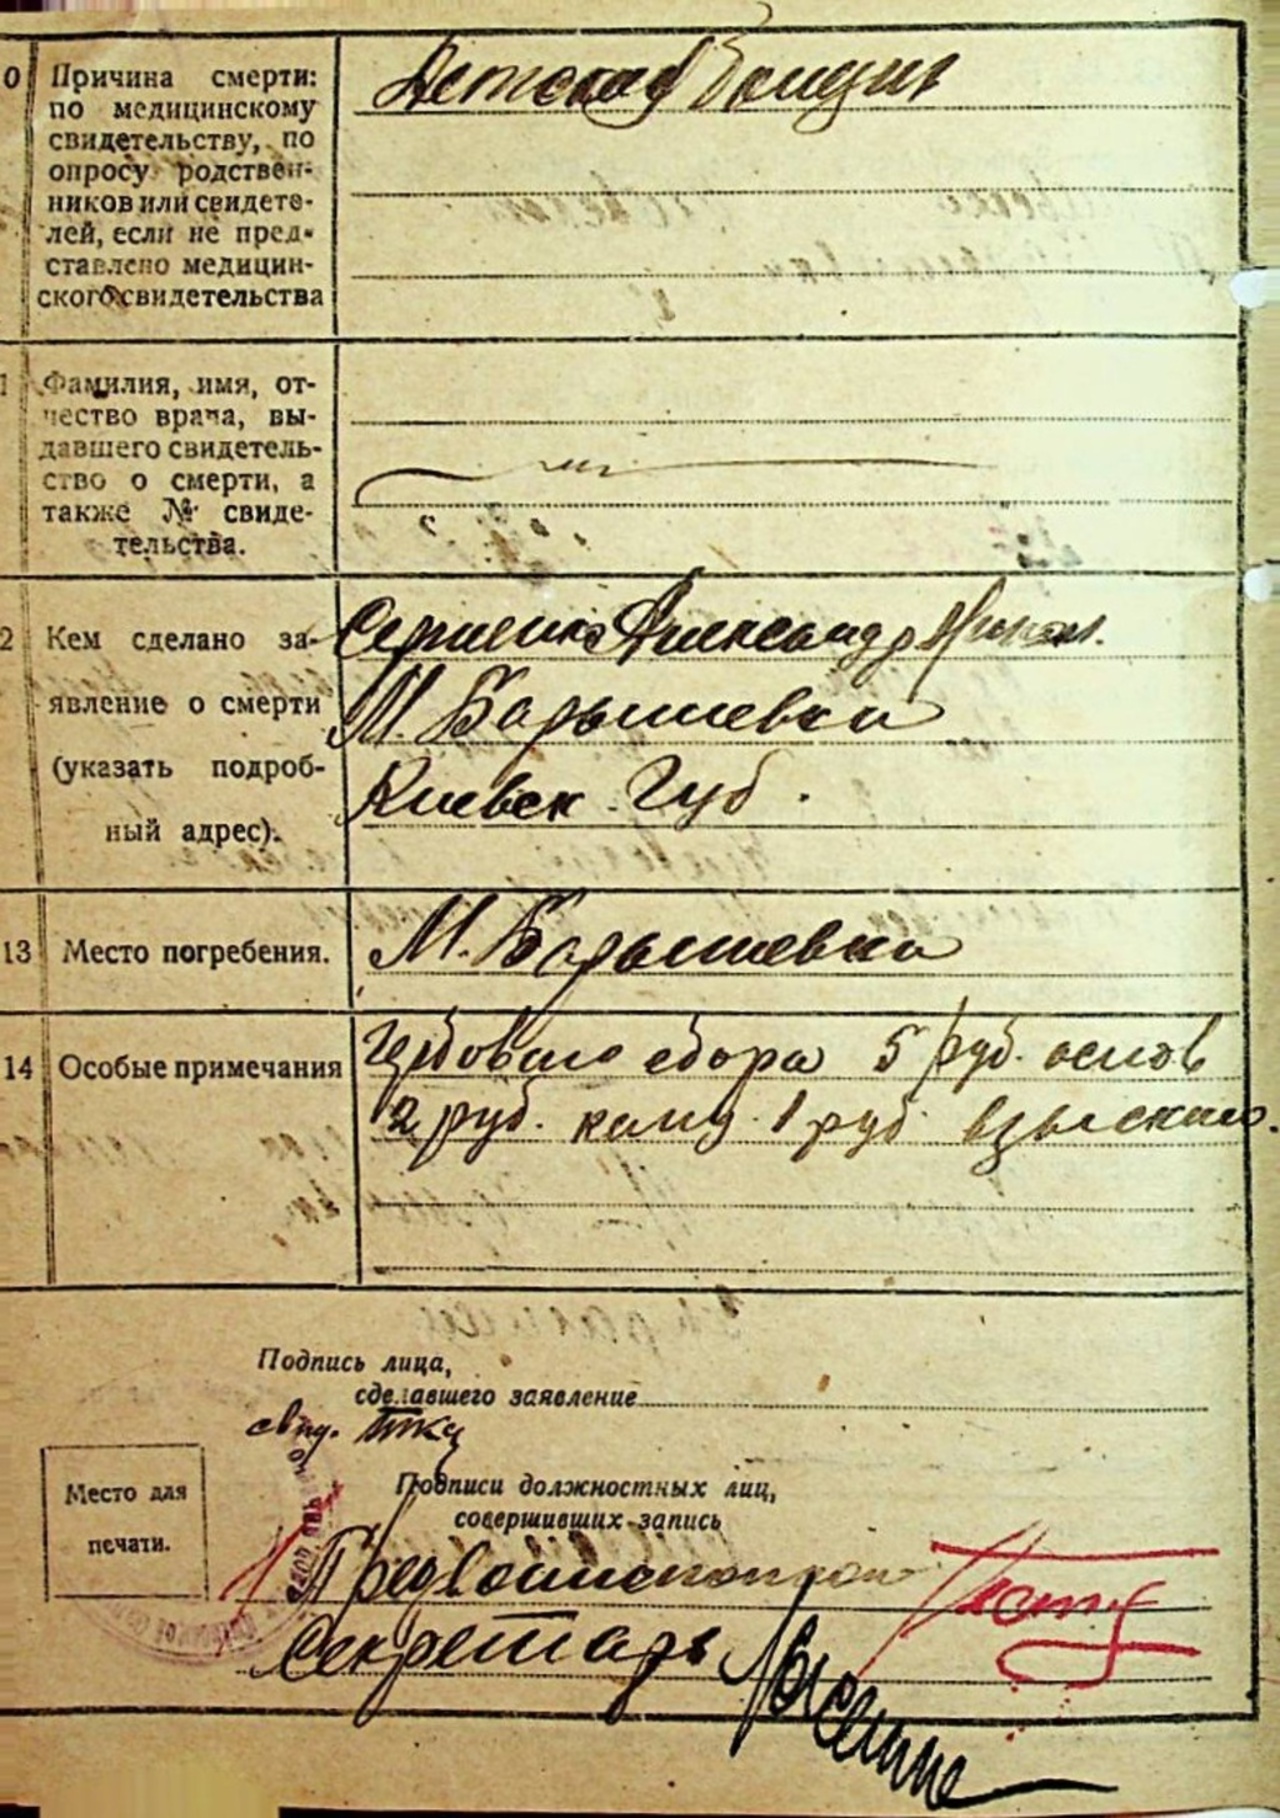 0 Причина смерти:
по медицинскому
свидетельству, по
опросу родствен-
ников или свидете-
лей, если не пред-
ставлено медицин-
ского свидетельства
Детская
1 Фамилия, имя, от-
чество врача, вы-
давшего свидетель-
ство о смерти, а
также № свиде-
тельства.
2 Кем сделано за-
явление о смерти
(указать подроб-
ный адрес).
Александр
М. Барышевка
Киевск. Губ.
13 Место погребения.
М. Барышевка
14 Особые примечания
Гербового сбора 5 руб. основ
2 руб. канц. 1 руб взыскано.
Подпись лица,
сделавшего заявление
Место для
печати.
Подписи должностных лиц,
совершивших запись
Секретарь